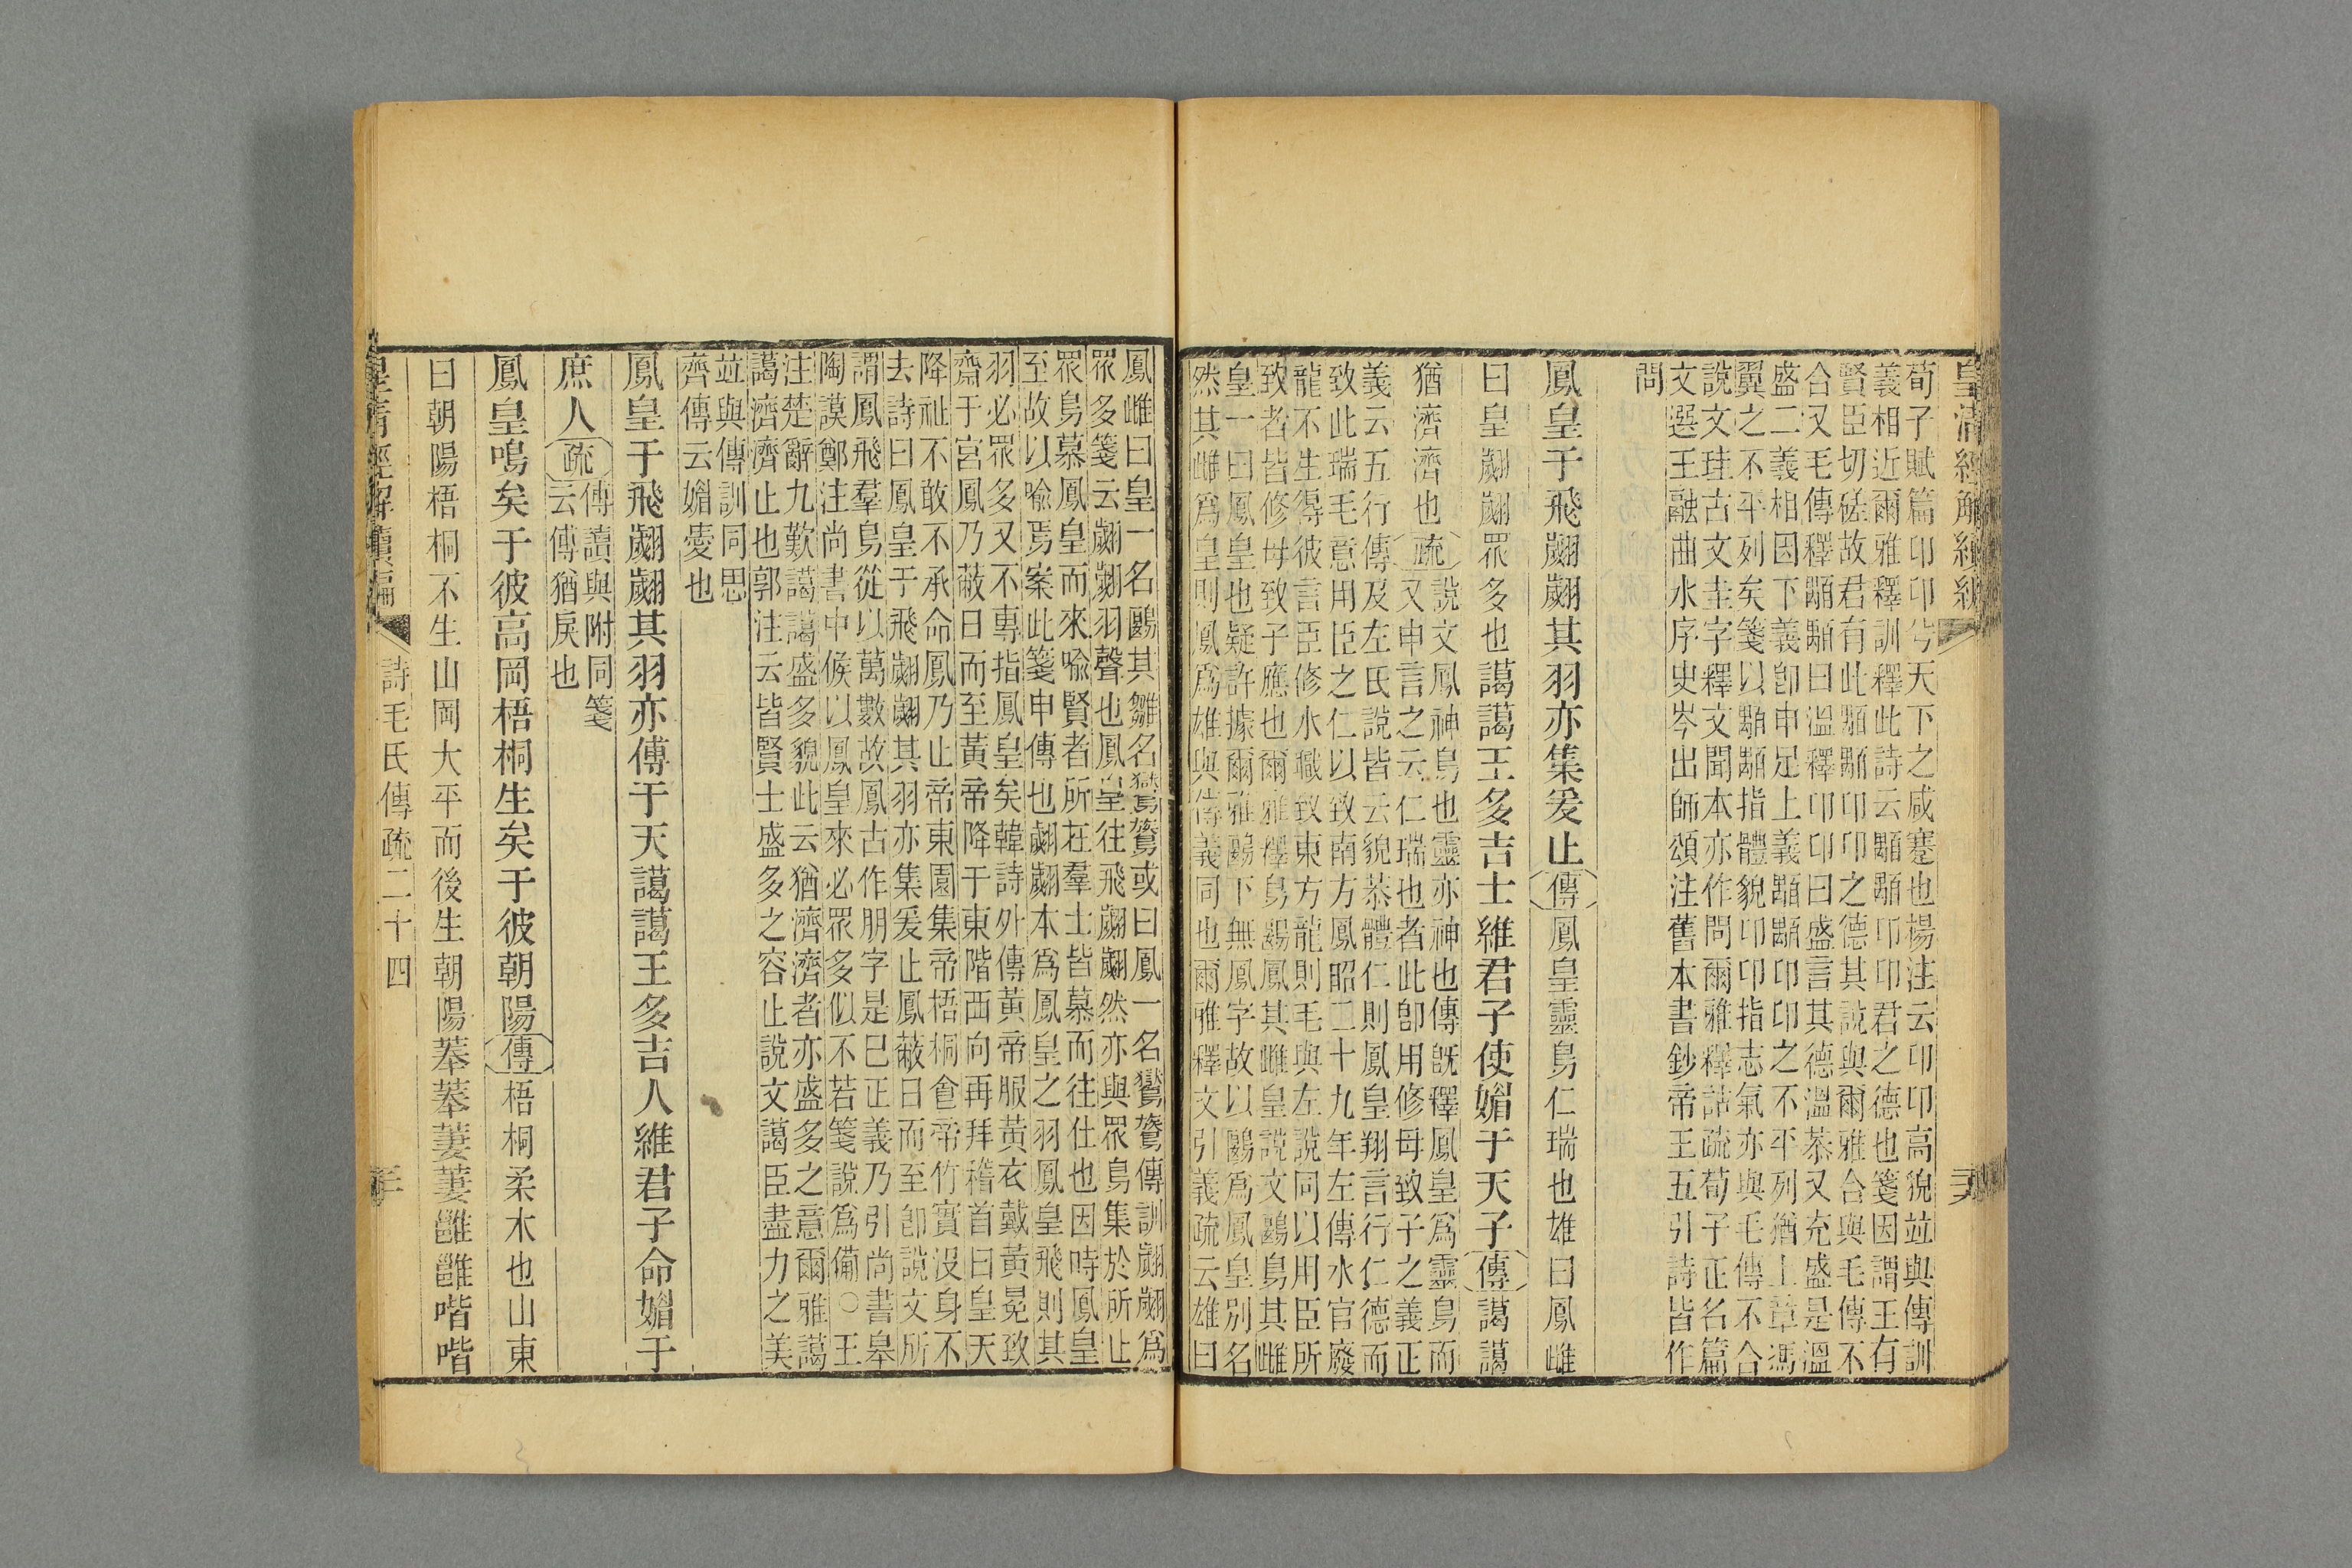 皇清經解續編
荀子賦篇卬卬兮天下之咸蹇也楊注云卬卬高貌竝與傳訓
義相近爾雅釋訓釋此詩云顒顒卬卬君之德也箋因謂王有
賢臣切磋故君有此顒顒卬卬之德其說與爾雅合與毛傳不
合又毛傳釋顒顒曰溫釋卬卬曰盛言其德溫恭又充盛是溫
盛二義相因下義卽申足上義顒顒卬卬之不平列猶上章馮
翼之不平列矣箋以顒顒指體貌卬卬指志氣亦與毛傳不合
說文珪古文圭字釋文聞本亦作問爾雅釋詁疏荀子正名篇
文選王融曲水序史岑出師頌注舊本書鈔帝王五引詩皆作
問
鳳皇于飛翽翽其羽亦集爰止傳鳳皇靈鳥仁瑞也雄曰鳳雌
曰皇翽翽眾多也藹藹王多吉士維君子使媚于天子傳藹藹
猶濟濟也疏說文鳳神鳥也靈亦神也傳旣釋鳳皇爲靈鳥而
又申言之云仁瑞也者此卽用修母致子之義正
義云五行傳及左氏說皆云貌恭體仁則鳳皇翔言行仁德而
致此瑞毛意用臣之仁以致南方鳳昭二十九年左傳水官廢
龍不生得彼言臣修水職致東方龍則毛與左說同以用臣所
致者皆修母致子應也爾雅釋鳥鶠鳳其雌皇說文鶠鳥其雌
皇一曰鳳皇也疑許據爾雅鶠下無鳳字故以鶠爲鳳皇別名
然其雌爲皇則鳳爲雄與傳義同也爾雅釋文引義疏云雄曰
鳳雌曰皇一名鶠其雛名鸑鷟或曰鳳一名鸑鷟傳訓翽翽爲
眾多箋云翽翽羽聲也鳳皇往飛翽翽然亦與眾鳥集於所止
眾鳥慕鳳皇而來喩賢者所在羣士皆慕而往仕也因時鳳皇
至故以喩焉案此箋申傳也翽翽本爲鳳皇之羽鳳皇飛則其
羽必眾多又不專指鳳皇矣韓詩外傳黃帝服黃衣戴黃冕致
齋于宮鳳乃蔽日而至黃帝降于東階西向再拜稽首曰皇天
降祉不敢不承命鳳乃止帝東園集帝梧桐食帝竹實沒身不
去詩曰鳳皇于飛翽翽其羽亦集爰止鳳蔽日而至卽說文所
謂鳳飛羣鳥從以萬數故鳳古作朋字是巳正義乃引尚書皋
陶謨鄭注尚書中候以鳳皇來必眾多似不若箋說爲備○王
注楚辭九歎藹藹盛多貌此云猶濟濟者亦盛多之意爾雅藹
藹濟濟止也郭注云皆賢士盛多之容止說文藹臣盡力之美
竝與傳訓同思
齊傳云媚愛也
鳳皇于飛翽翽其羽亦傅于天藹藹王多吉人維君子命媚于
庶人疏傅讀與附同箋
云傅猶戾也
鳳皇鳴矣于彼高岡梧桐生矣于彼朝陽傳梧桐柔木也山東
曰朝陽梧桐不生山岡大平而後生朝陽菶菶萋萋雝雝喈喈
皇清經解續編　詩毛氏傳疏二十四